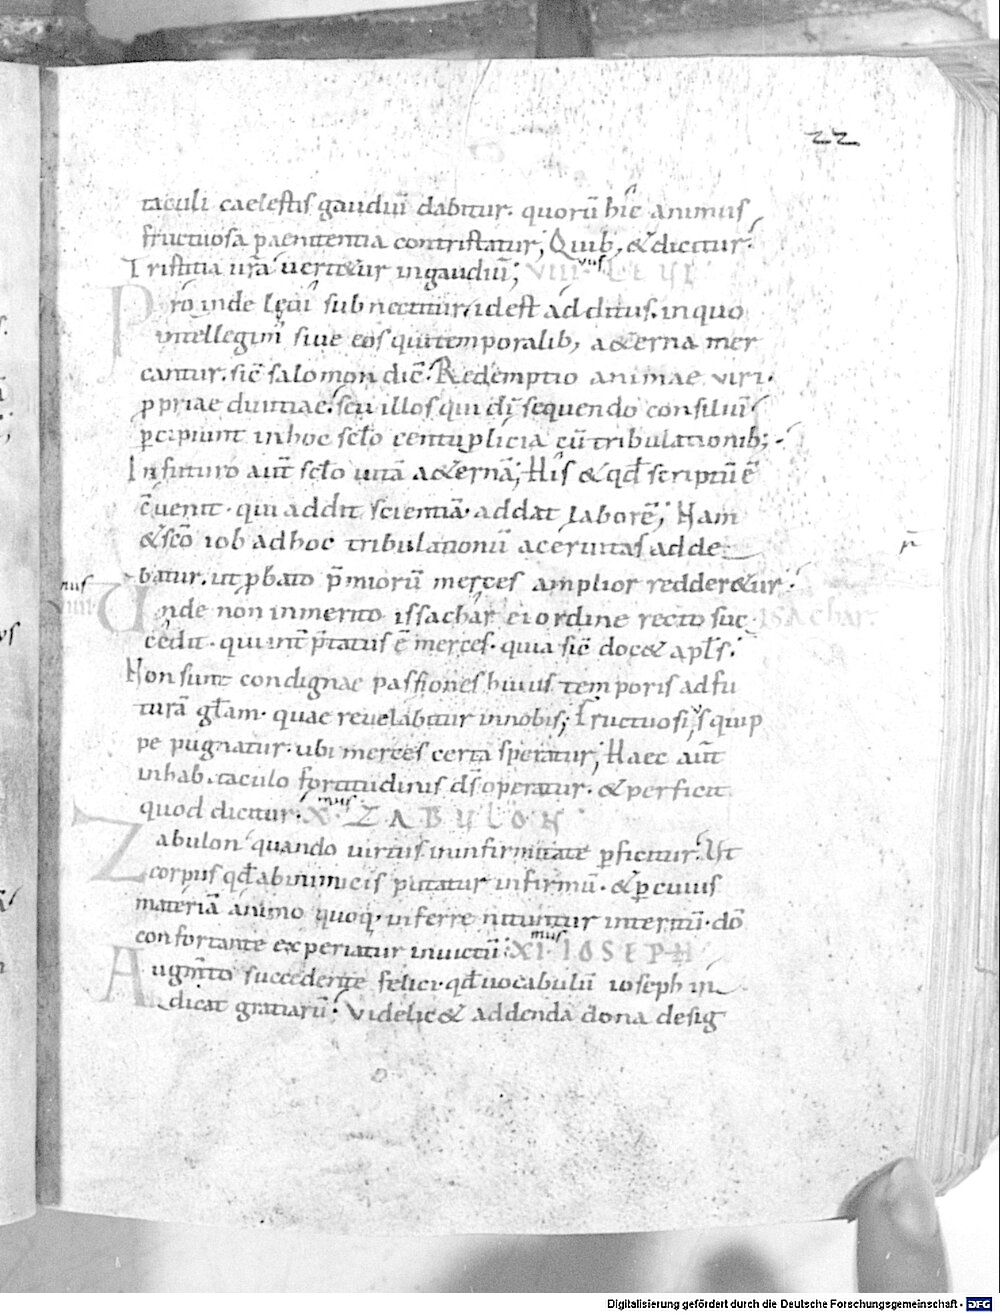 22
taculi caelestis gaudiū dabitur. quorū hic animus
fructuosa paenitentia contristatur; Quib; & dicitur.
Tristitia ur̄a uert&ur in gaudiū; VIII LEVI
Proinde leui subnectitur, id est additus. in quo
intellegim̄ siue eos qui temporalib; a&erna mer
cantur. sic̄ salomon dic̄. Redemptio animae uiri.
ꝓpriae diuitiae. seu illos qui dī sequendo consiliū
ꝑcipiunt in hoc sc̄lo centuplicia cū tribulationib;
In futuro aut̄ sc̄lo uitā a&ernā; His & qd̄ scriptū ē
c̄uenit. qui addit scientiā. addat laborē; Nam
& sc̄o iob ad hoc tribulationū aceruitas adde
batur. ut ꝓbato p̄miorū merces amplior redder&ur.
Unde non inmerito issachar ei ordine recto suc ISACHAR.
cedit. qui int̄p̄tatus ē merces. quia sic̄ doc& apl̄s.
Non sunt condignae passiones huius temporis ad fu
turā gl̄am. quae reuelabitur in nobis; Fructuosius quip
pe pugnatur. ubi merces certa speratur; Haec aut̄
in habitaculo fortitudinis ds̄ operatur. & perficit
quod dicitur. X.mus ZABULON
Zabulon quando uirtus in infirmitate ꝑficitur. Ut
corpus qd̄ ab inimicis putatur infirmū. & ꝑ cuius
materiā animo quoq; inferre nituntur interitū. dō
confortante experiatur inuictū; XI.mus IOSEPH
Augm̄to succedente felici. qd̄ uocabulū ioseph in
dicat gratiarū. Videlic& addenda dona desig
Digitalisierung gefördert durch die Deutsche Forschungsgemeinschaft - DFG